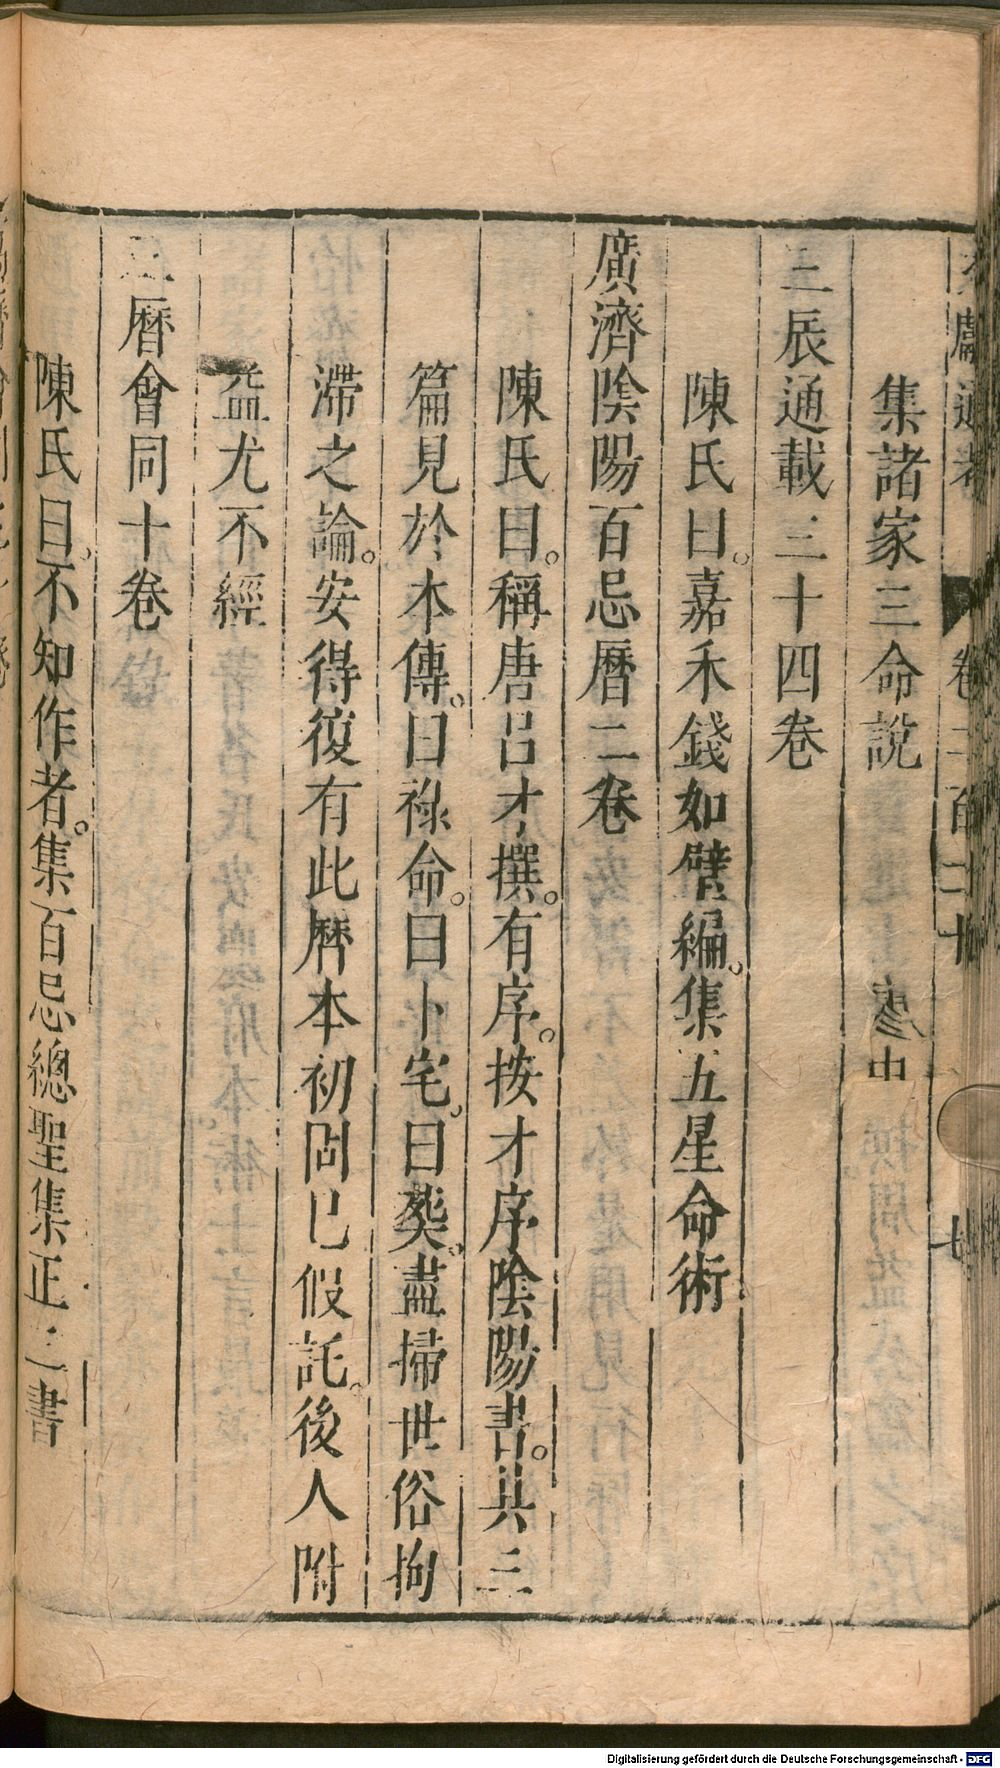 文獻通考 卷二百二十 七
集諸家三命說 廖中
三辰通載三十四卷
陳氏曰。嘉禾錢如璧編。集五星命術
廣濟陰陽百忌曆二卷
陳氏曰。稱唐呂才撰。有序。按才序陰陽書。其三
篇見於本傳。曰祿命。曰卜宅。曰葬。盡掃世俗拘
滯之論。安得復有此曆本初固已假託。後人附
益尤不經
曆會同十卷
陳氏曰。不知作者。集百忌總聖集正三書
Digitalisierung gefördert durch die Deutsche Forschungsgemeinschaft - DFG